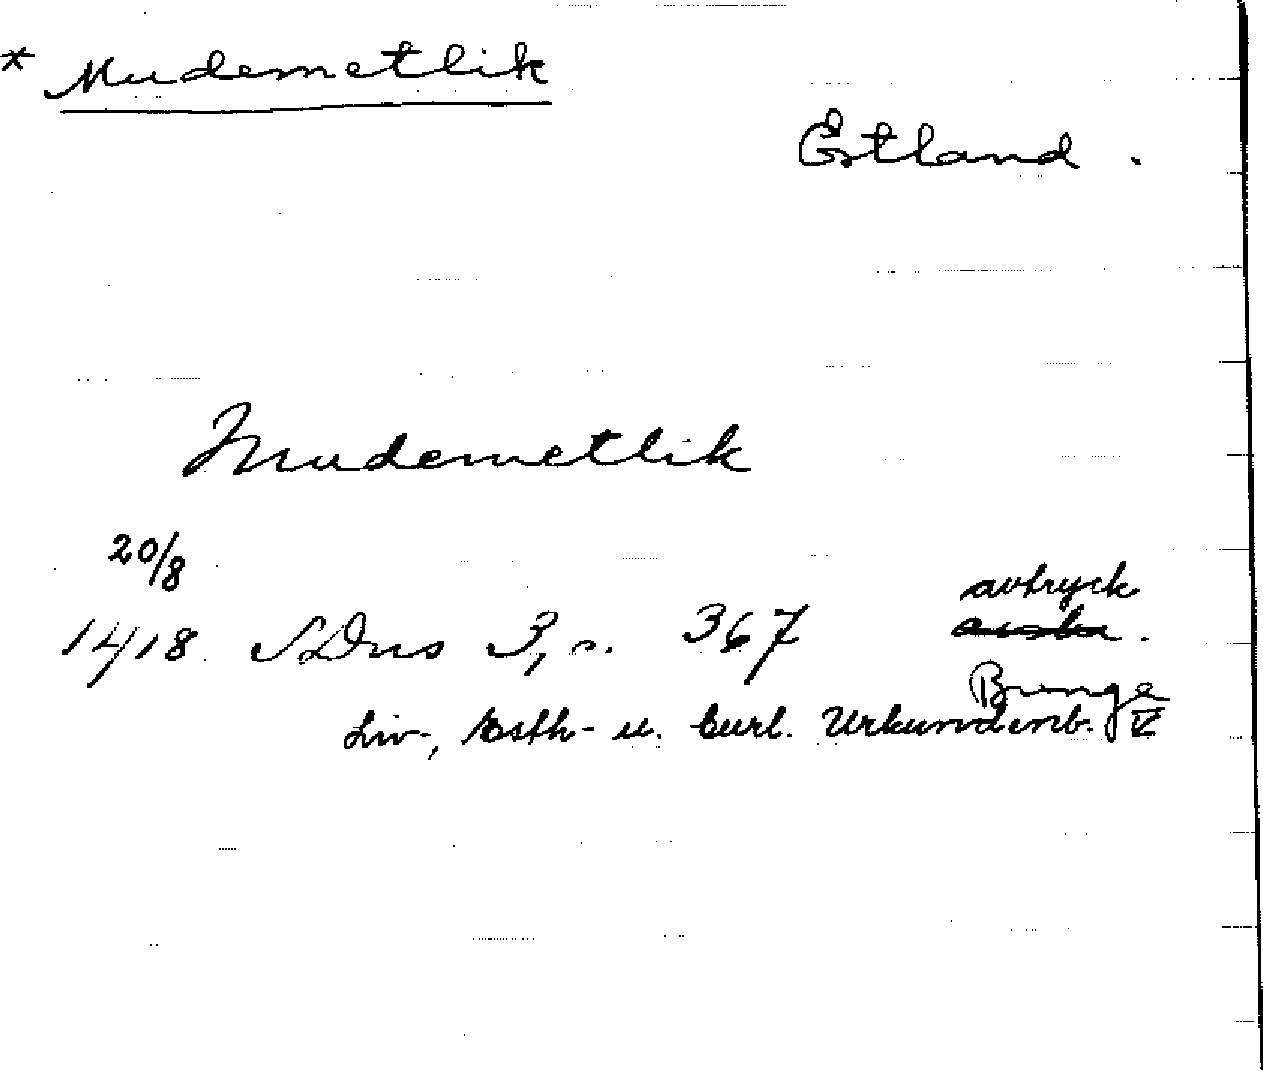 * Mudemetlik
Estland.
Mudemetlik
20/8
avtryck
1418 SDns 3, s. 367
Bunge
Liv-, Esth- u. Curl. Urkundenb. V